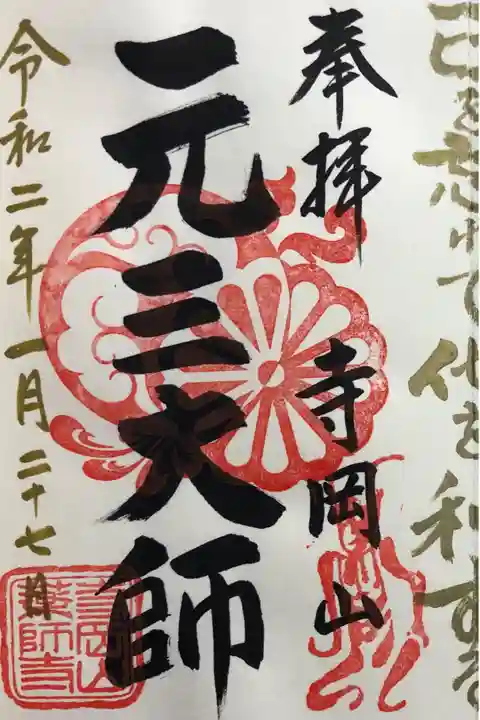 己を忘れて他を利する
奉拝 寺岡山
元三大師
令和二年一月二十七日
寺岡山
薬師寺